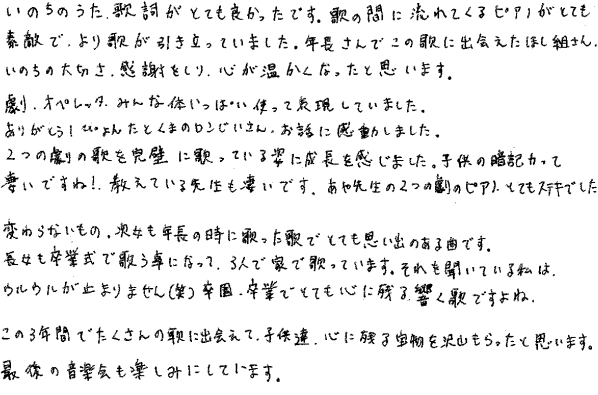 いのちのうた、歌詞がとても良かったです。歌の間に流れてくるピアノがとても
素敵で、より歌が引き立っていました。年長さんでこの歌に出会えたほし組さん、
いのちの大切さ、感謝をしり、心が温かくなったと思います。
劇、オペレッタ、みんな体いっぱい使って表現していました。
ありがとう!ぴょんたとくまのロンじいさん、お話に感動しました。
2つの劇の歌を完璧に歌っている姿に成長を感じました。子供の暗記力って
凄いですね!、教えている先生も凄いです。あや先生の2つの劇のピアノ、とてもステキでした
変わらないもの、次女も年長の時に歌った歌でとても思い出のある曲です。
長女も卒業式で歌う事になって、3人で家で歌っています。それを聞いている私は、
ウルウルが止まりません(笑) 卒園、卒業でとても心に残る、響く歌ですよね、
この3年間でたくさんの歌に出会えて、子供達、心に残る宝物を沢山もらったと思います。
最後の音楽会も楽しみにしています。